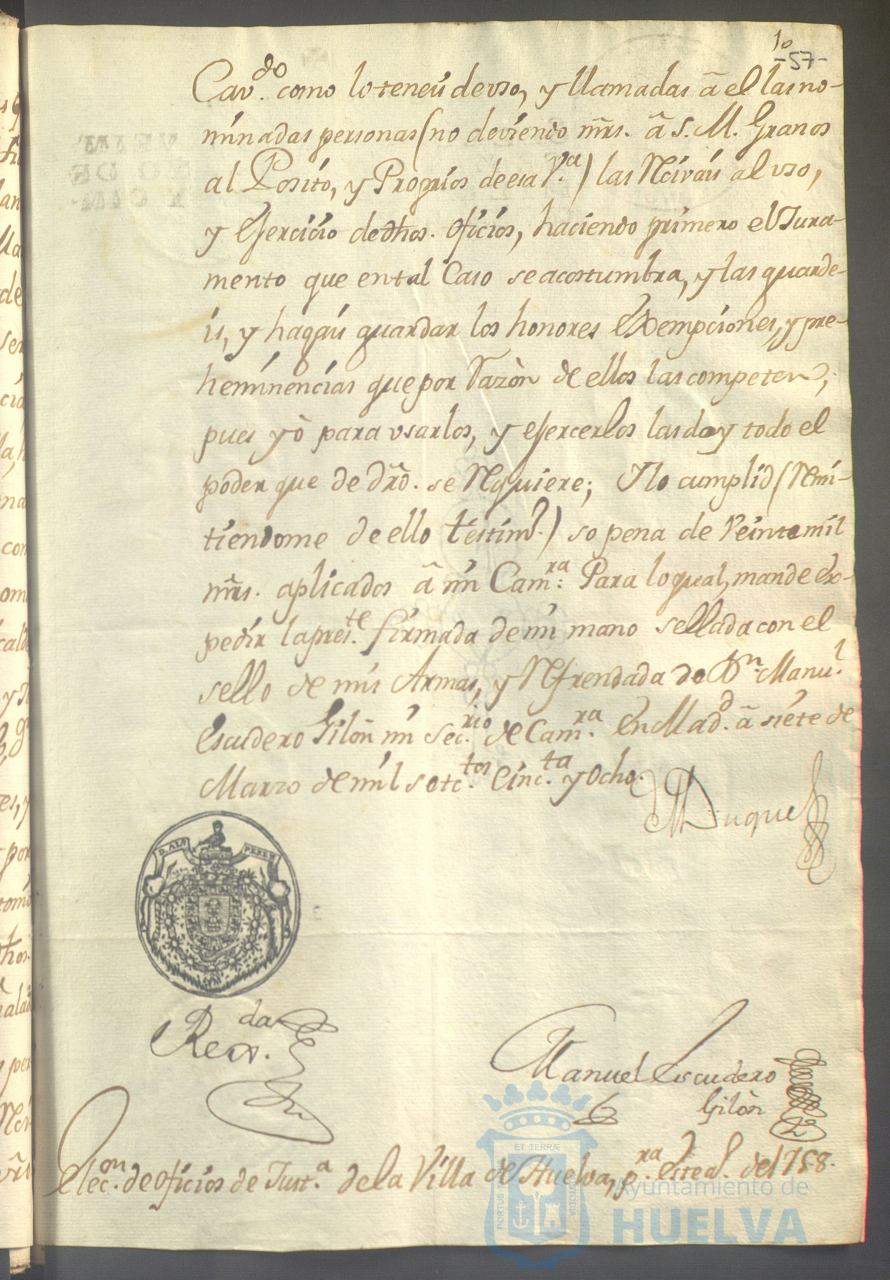 1º
-57-
Cav.do como lo teneis de uso, y llamadas â el las no-
minadas personas (no deviendo mrs. â S. M. Granos
al Posito, y Propios de esa V.a) las Recivais al uso,
y Exercicio de dhos. oficios, haciendo primero el Jura-
mento que en tal Caso se acostumbra, y las guarde-
is, y hagais guardar los honores Exempciones, y pre-
heminencias que por razòn de ellos las competen;
pues yò para usarlos, y exercerlos las doy todo el
poder que de drò. se Requiere; Y lo cumplid (Remi-
tiendome de ello testim.o) so pena de Veinte mil
mrs. aplicados â mi Cam.ra Para lo qual, mande ex-
pedir la pres.te firmada de mi mano sellada con el
sello de mis Armas, y Refrendada de D.n Manu.l
Escudero Gilòn mi Sec.rio de Cam.ra En Mad.d â siete de
Marzo de mil setc.tos Cinc.ta y Ocho.
El Duque
D. ALO PEREZ
Rex.da
Manuel Escudero
Gilòn
Elec.on de oficios de Just.a de la Villa de Huelva, p.ra este a.l de 1758.
ET TERRAE
PORTUS CUSTODIA
Ayuntamiento de
HUELVA